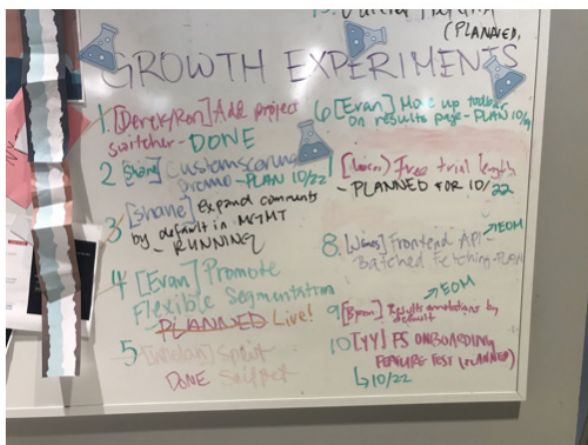 (PLANNED,
GROWTH EXPERIMENTS
1. [Derek/Ron] Add project
switcher - DONE
2 [Shane] Custom scoring
promo - PLAN 10/22
3 [Shane] expand comments
by default in MGMT
- RUNNING
4 [Evan] Promote
Flexible Segmentation
- PLANNED Live!
5 Split
DONE Snippet
6 [Evan] Move up toolbar
on results page - PLAN 10/
Free trial length
- PLANNED FOR 10/22
8. [James] Frontend API -
Batched Fetching - PLAN
EOM
EOM
9 [Byron] Results annotations by
default
10 [YY] FS ONBOARDING
FEATURE TEST (PLANNED)
10/22